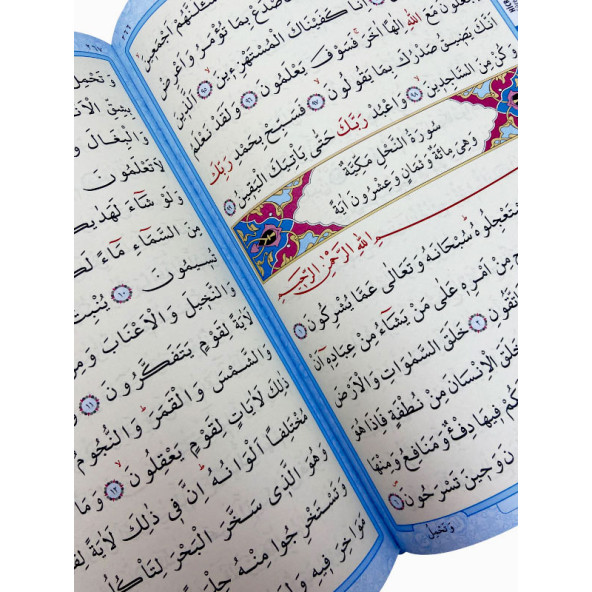 ٢٦٦
لَنَّهُمْ اَجْمَعِينَ
فَاصْدَعْ بِمَا تُؤْمَرُ وَاَعْرِضْ
اِنَّا كَفَيْنَاكَ الْمُسْتَهْزِئِينَ ٩٥ اَلَّذِينَ
يَجْعَلُونَ مَعَ اللّٰهِ اِلٰهًا اٰخَرَ فَسَوْفَ يَعْلَمُونَ ٩٦ وَلَقَدْ نَعْلَمُ
اَنَّكَ يَضِيقُ صَدْرُكَ بِمَا يَقُولُونَ ٩٧ فَسَبِّحْ بِحَمْدِ رَبِّكَ
وَكُنْ مِنَ السَّاجِدِينَ ٩٨ وَاعْبُدْ رَبَّكَ حَتّٰى يَأْتِيَكَ الْيَقِينُ ٩٩
سُورَةُ النَّحْلِ مَكِّيَّةٌ
وَهِيَ مِائَةٌ وَثَمَانٍ وَعِشْرُونَ اٰيَةً
اللّٰهِ الرَّحْمٰنِ الرَّحِيمِ
تَسْتَعْجِلُوهُ سُبْحَانَهُ وَتَعَالٰى عَمَّا يُشْرِكُونَ ١
مِنْ اَمْرِهٖ عَلٰى مَنْ يَشَاءُ مِنْ عِبَادِهٖ اَنْ
فَاتَّقُونِ ٢ خَلَقَ السَّمٰوَاتِ وَالْاَرْضَ
خَلَقَ الْاِنْسَانَ مِنْ نُطْفَةٍ فَاِذَا هُوَ
كُمْ فِيهَا دِفْءٌ وَمَنَافِعُ وَمِنْهَا
نَ وَحِينَ تَسْرَحُونَ ٦
وَتَحْمِلُ
٢٦٧
وَتَحْمِلُ
بِشِقِّ الْاَ
وَالْبِغَالَ وَا
لَا تَعْلَمُونَ
وَلَوْ شَاءَ لَهَدٰيكُ
مِنَ السَّمَاءِ مَاءً لَكُ
تُسِيمُونَ ١٠ يُنْبِتُ
وَالنَّخِيلَ وَالْاَعْنَابَ وَمِنْ
لَاٰيَةً لِقَوْمٍ يَتَفَكَّرُونَ ١١
وَالشَّمْسَ وَالْقَمَرَ وَالنُّجُومُ
ذٰلِكَ لَاٰيَاتٍ لِقَوْمٍ يَعْقِلُونَ ١٢ وَمَا
مُخْتَلِفًا اَلْوَانُهُ اِنَّ فِي ذٰلِكَ لَاٰيَةً لِقَ
وَهُوَ الَّذِي سَخَّرَ الْبَحْرَ لِتَأْكُلُ
وَتَسْتَخْرِجُوا مِنْهُ حِلْيَ
مَوَاخِرَ فِيهِ وَلِ